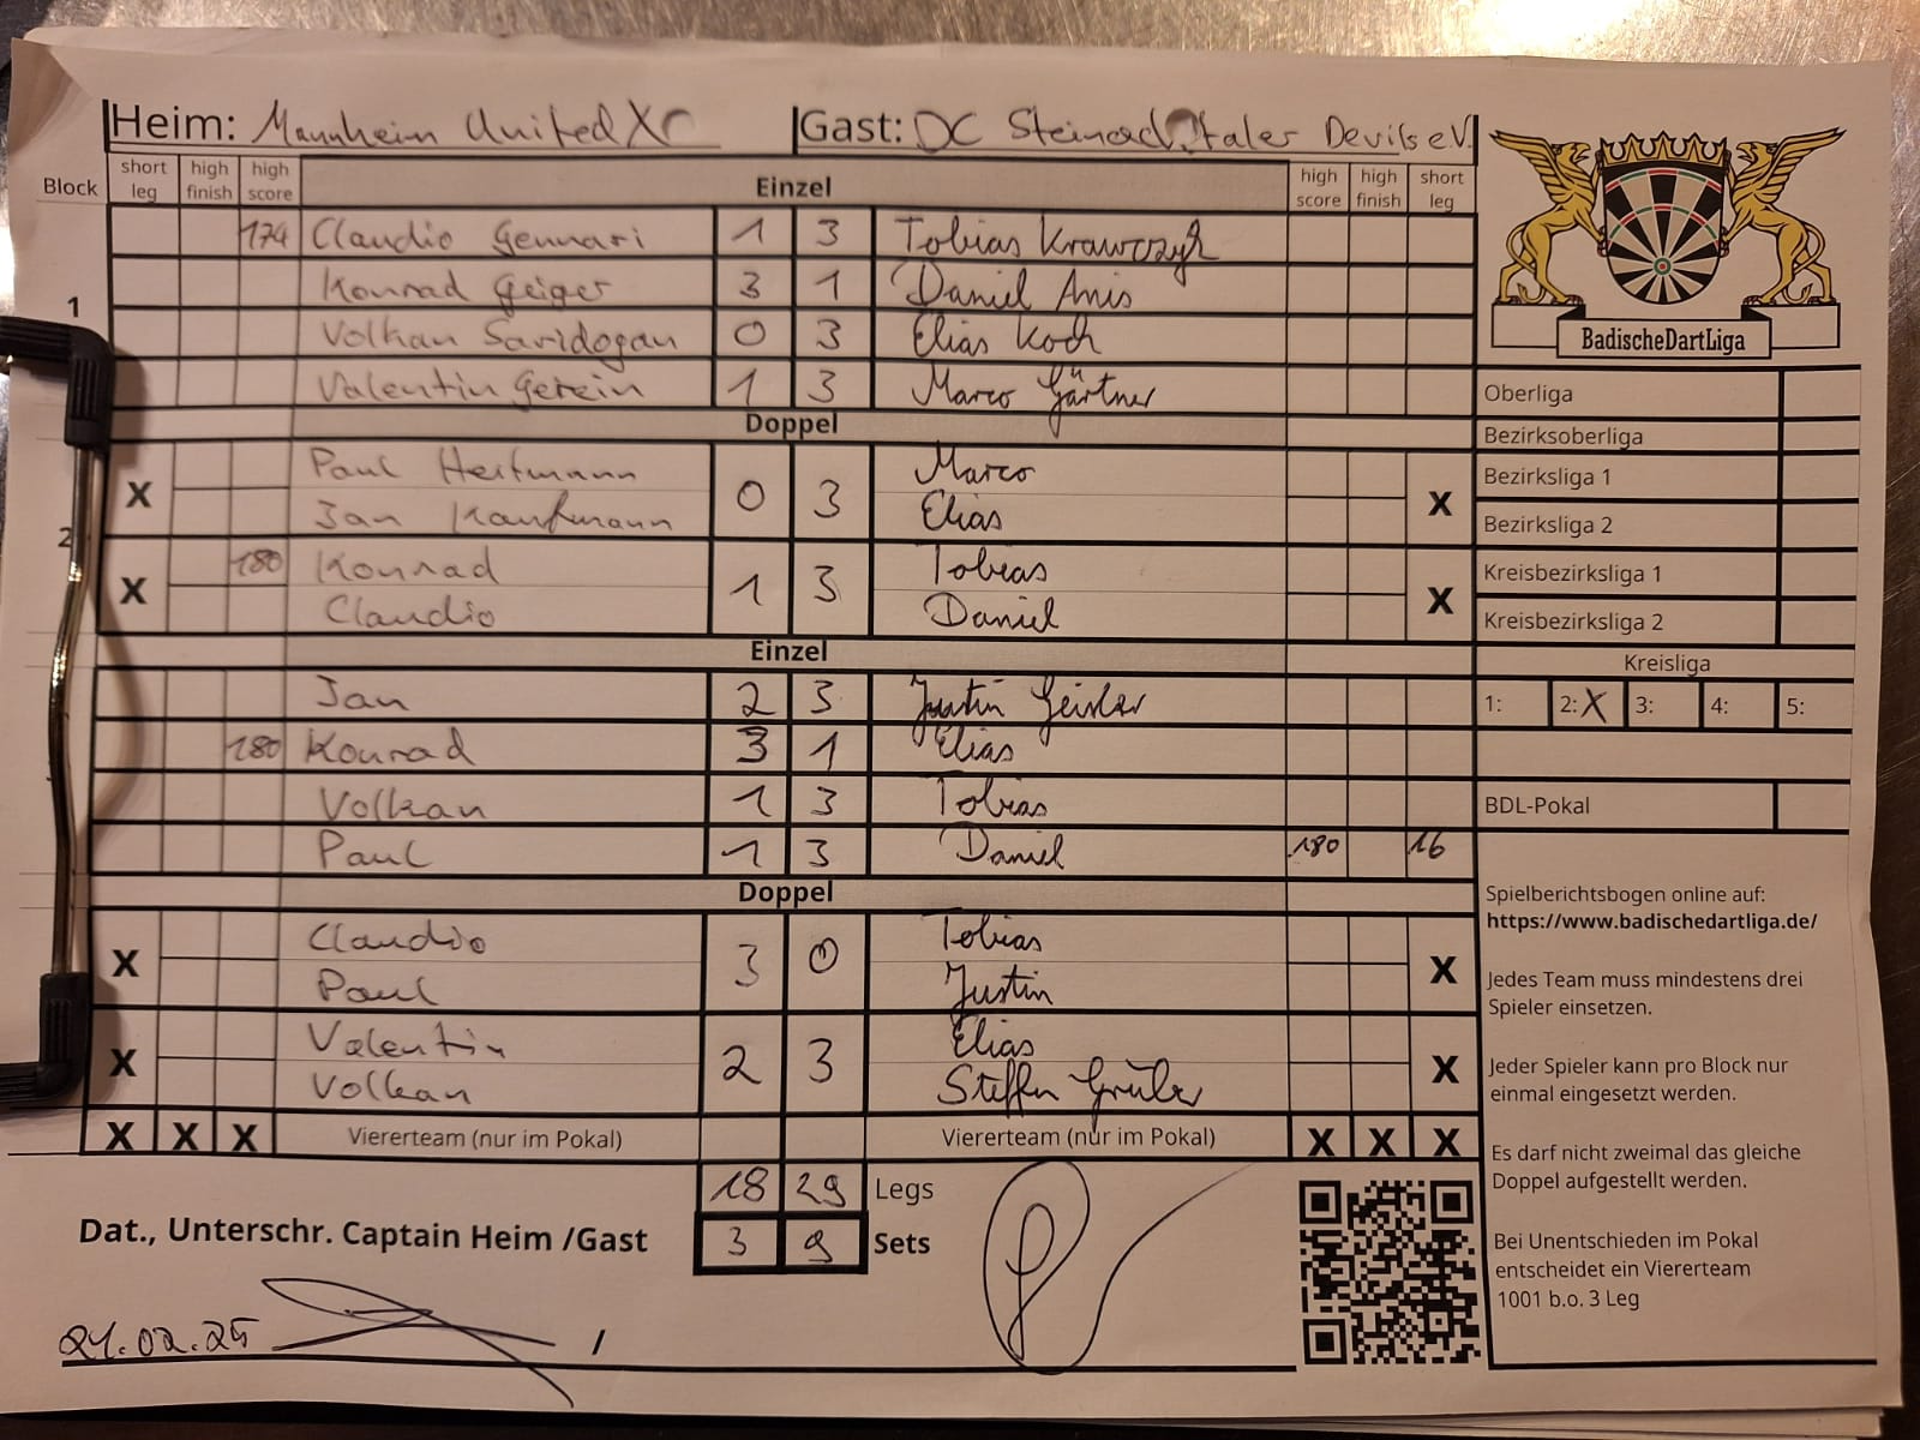 Heim: Mannheim United XC Gast: DC Steinach taler Devils e.V.
Block short leg high finish high score Einzel high score high finish short leg
174 Claudio Gennari 1 3 Tobias Krawczyk
1 Konrad Geiger 3 1 Daniel Anis
Volkan Saridogan 0 3 Elias Koch
Valentin Gerein 1 3 Marco Gärtner
Doppel
Paul Heitmann Marco
X 0 3 X
Jan Kaufmann Elias
2
180 Konrad Tobias
X 1 3 X
Claudio Daniel
Einzel
Jan 2 3 Justin Geisler
180 Konrad 3 1 Elias
Volkan 1 3 Tobias
Paul 1 3 Daniel 180 16
Doppel
Claudio Tobias
X 3 0 X
Paul Justin
Valentin Elias
X 2 3 X
Volkan Steffen Grüler
X X X Viererteam (nur im Pokal) Viererteam (nur im Pokal) X X X
18 29 Legs
Dat., Unterschr. Captain Heim /Gast 3 9 Sets
21.02.25 /
BadischeDartLiga
Oberliga
Bezirksoberliga
Bezirksliga 1
Bezirksliga 2
Kreisbezirksliga 1
Kreisbezirksliga 2
Kreisliga
1: 2: X 3: 4: 5:
BDL-Pokal
Spielberichtsbogen online auf:
https://www.badischedartliga.de/
Jedes Team muss mindestens drei
Spieler einsetzen.
Jeder Spieler kann pro Block nur
einmal eingesetzt werden.
Es darf nicht zweimal das gleiche
Doppel aufgestellt werden.
Bei Unentschieden im Pokal
entscheidet ein Viererteam
1001 b.o. 3 Leg